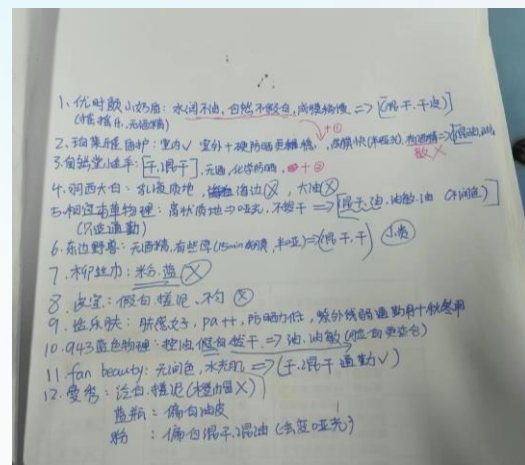 1、优时颜小奶盾：水润不油，自然不假白，成膜稍慢 => [混干、干皮]
(摇摇乐、无酒精)
2、珀莱雅 盾护：室内√ 室外+硬防晒更 成膜快 => 混油
+①
敏X
3、自然堂小金车：[干、混干]，无酒，化学防晒，+②
4、珂西大白：乳液质地 海边(X)，大油(X)
5、相宜本草物理：膏状质地=>哑光，不够干 => [混干、油、油敏、油 (不润色)]
(只适通勤)
6、东边野兽：无酒精，有些厚(15min成膜，半哑)=>(混干、干) 小贵
7、柳丝木：粉、蓝(X)
8、安宜：假白、搓泥、不匀(X)
9、怡乐肤：肤感好，pa++，防晒力低，紫外线弱通勤用+秋冬用
10、943蓝色物理：控油，假白 干，=>油、油敏
11、fan beauty：无润色，水光肌 =>(干、混干 通勤√)
12、蔓秀：泛白、搓泥
蓝瓶：偏白油皮
粉：偏白混干、混油